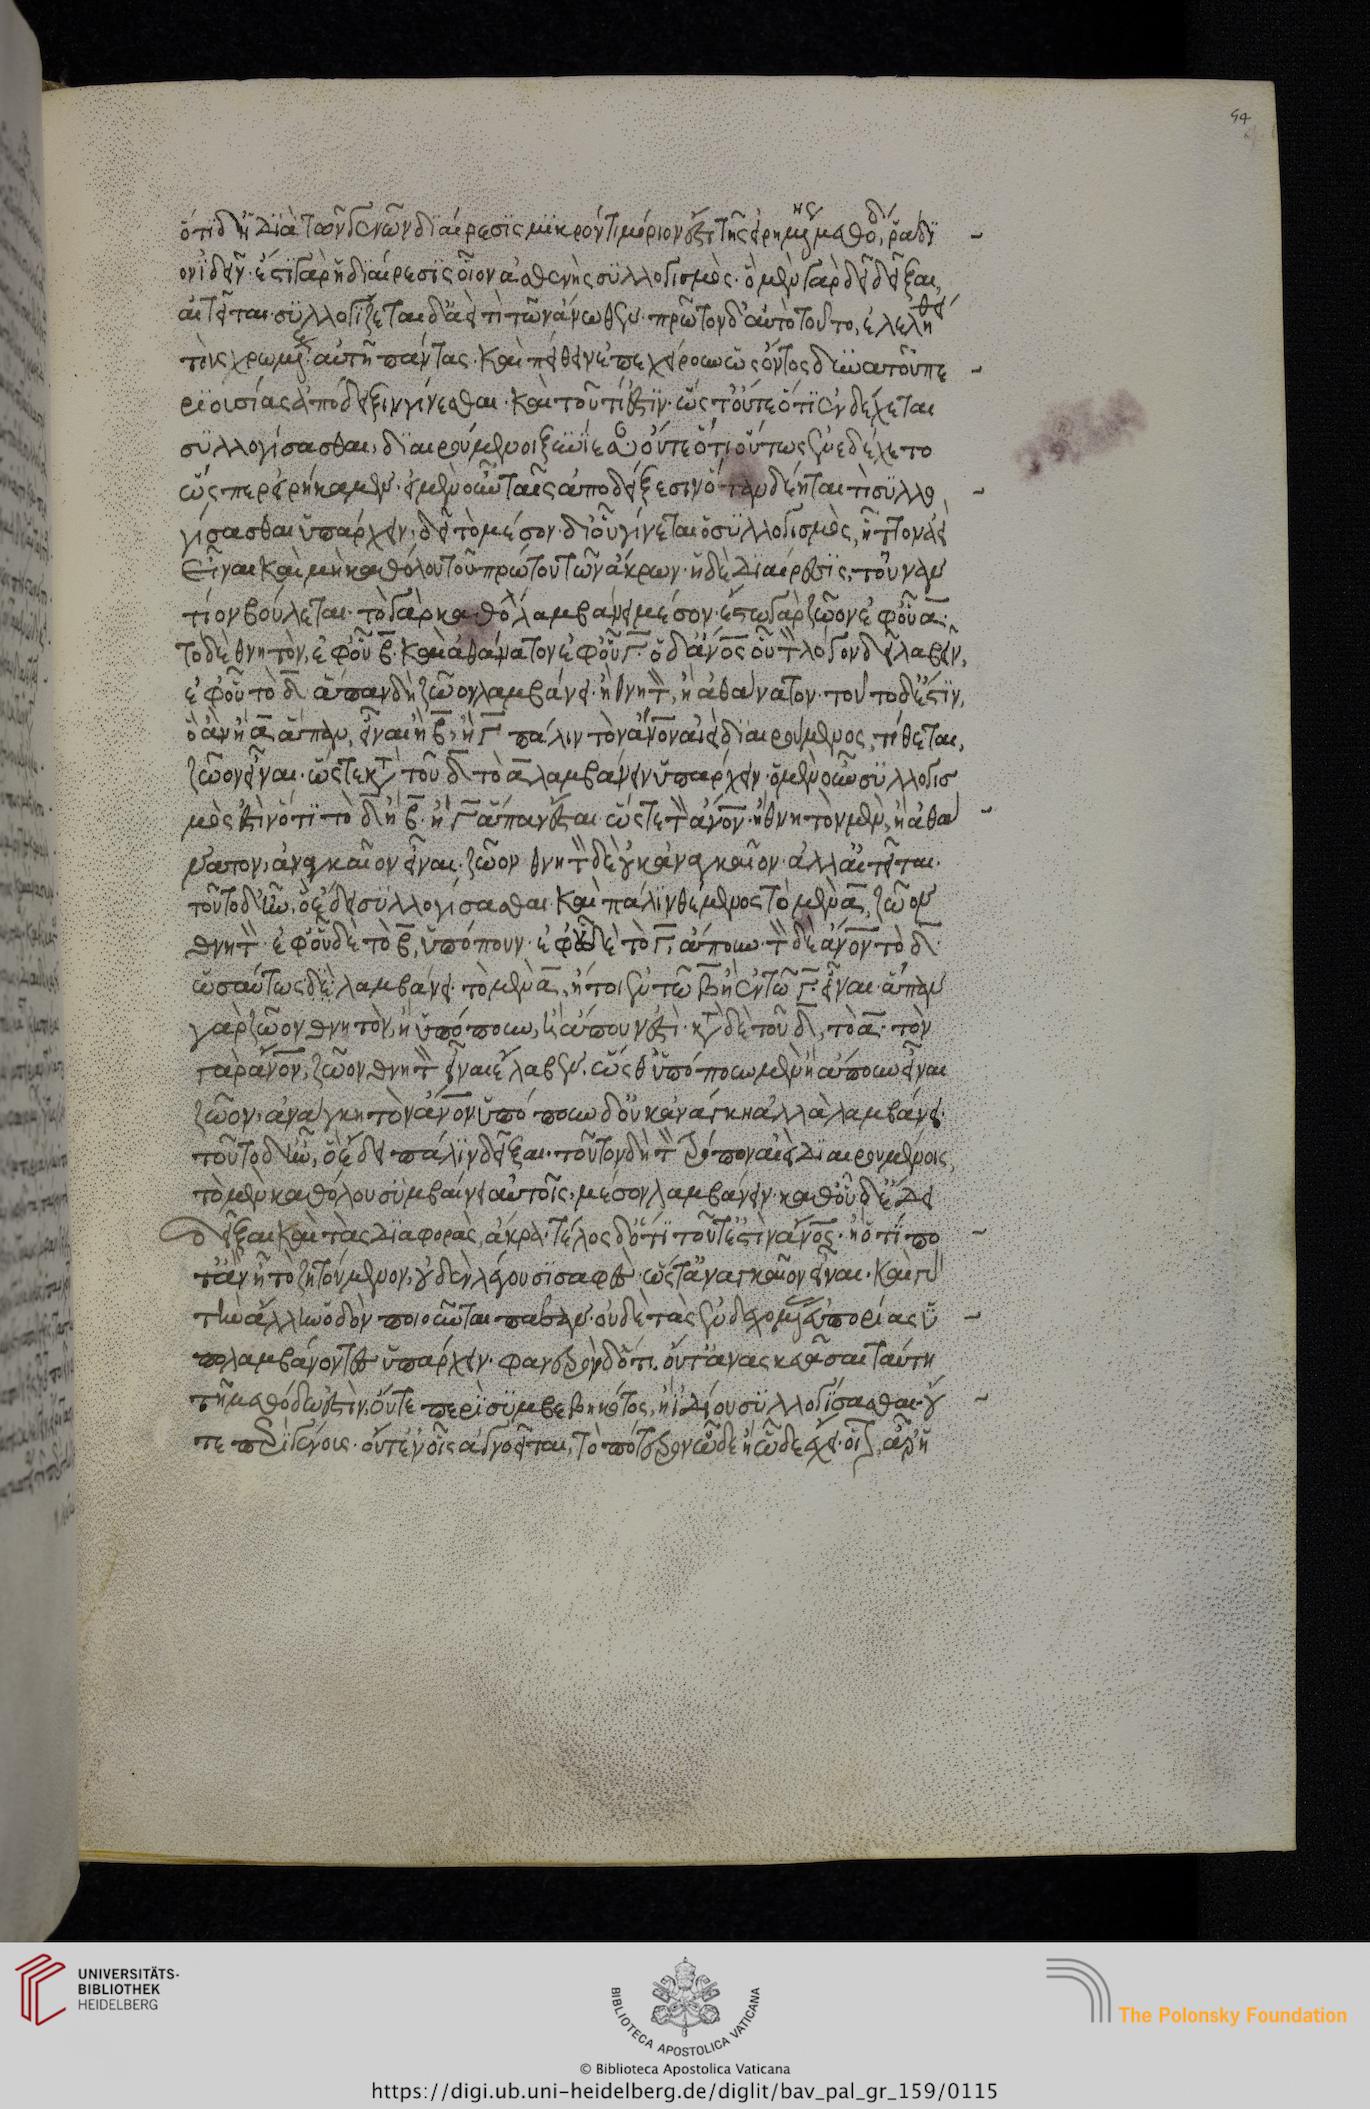 ὅτι δ' ἡ διὰ τῶν γενῶν διαίρεσις μικρόν τι μόριον ἐστι τῆς εἰρημένης μεθόδ, ῥάδι
ον ἰδεῖν· ἔστι γὰρ ἡ διαίρεσις οἷον ἀσθενὴς συλλογισμὸς· ὃ μὲν γὰρ δεῖ δεῖξαι,
αἰτεῖται· συλλογίζεται δ' ἀεί τι τῶν ἄνωθεν· πρῶτον δ' αὐτὸ τοῦτο, ἐλελήθει
τοὺς χρωμένους αὐτῇ πάντας· καὶ πείθειν ἐπεχείρουν ὡς ὄντος δυνατοῦ πε
ρὶ οὐσίας ἀπόδειξιν γίνεσθαι· καὶ τοῦ τί ἐστιν· ὥστ' οὔτε ὅτι ἐνδέχεται
συλλογίσασθαι, διαιρούμενοι ξυνίεσαν οὔτε ὅτι οὕτως ἐνεδέχετο
ὥσπερ εἰρήκαμεν· ἐν μὲν οὖν ταῖς ἀποδείξεσιν ὅταν δέηται τὶ συλλο
γίσασθαι ὑπάρχειν, δεῖ τὸ μέσον δι' οὗ γίνεται ὁ συλλογισμὸς, ἧττον ἀεὶ
εἶναι καὶ μὴ καθόλου τοῦ πρώτου τῶν ἄκρων· ἡ δὲ διαίρεσις, τοὐναν
τίον βούλεται· τὸ γὰρ καθόλ λαμβάνει μέσον· ἔστω γὰρ ζῶον ἐφ' οὗ α·
τὸ δὲ θνητὸν, ἐφ' οὗ β· καὶ ἀθάνατον ἐφ' οὗ Γ· ὁ δ' ἄνος οὗ τὸν λόγον δεῖ λαβεῖν,
ἐφ' οὗ τὸ δ ἅπαν δὴ ζῶον λαμβάνει· ἢ θνητὸν, ἢ ἀθάνατον· τοῦτο δ' ἐστὶν,
ὃ ἂν ᾖ α ἅπαν, εἶναι ἢ β, ἢ Γ πάλιν τὸν ἄνον ἀεὶ διαιρούμενος, τίθεται,
ζῶον εἶναι· ὥστε κατὰ τοῦ δ τὸ α λαμβάνειν ὑπάρχειν· ὁ μὲν οὖν συλλογισ
μὸς ἐστὶν ὅτι τὸ δ ἢ β· ἢ Γ ἅπαν ἔσται· ὥστε τὸν ἄνον· ἢ θνητὸν μὲν, ἢ ἀθά
νατον, ἀναγκαῖον εἶναι· ζῶον θνητὸν δὲ οὐκ ἀναγκαῖον· ἀλλ' αἰτεῖται·
τοῦτο δ' ἦν, ὃ ἔδει συλλογίσασθαι· καὶ πάλιν θέμενος τὸ μὲν α, ζῶον
θνητὸν· ἐφ' οὗ δὲ τὸ β, ὑπόπουν· ἐφ' οὗ δὲ τὸ Γ, ἄπουν· τὸν δὲ ἄνον τὸ δ·
ὡσαύτως δὲ λαμβάνει· τὸ μὲν α, ἤτοι ἐν τῷ β ἢ ἐν τῷ Γ εἶναι· ἅπαν
γὰρ ζῶον θνητὸν, ἢ ὑπόπουν, ἢ ἄπουν ἐστὶ· κατὰ δὲ τοῦ δ, τὸ α· τὸν
γὰρ ἄνον, ζῶον θνητὸν εἶναι ἔλαβεν· ὥσθ' ὑπόπουν μὲν ἢ ἄπουν εἶναι
ζῶον, ἀνάγκη τὸν ἄνον ὑπόπουν δ' οὐκ ἀνάγκη ἀλλὰ λαμβάνει·
τοῦτο δ' ἦν, ὃ ἔδει πάλιν δεῖξαι· τοῦτον δὴ τὸν τρόπον αἰεὶ διαιρουμένοις,
τὸ μὲν καθόλου συμβαίνει αὐτοῖς, μέσον λαμβάνειν· καθ' οὗ δ' ἔδει
δεῖξαι καὶ τὰς διαφορὰς, ἄκρα· τέλος δ' ὅτι τοῦτ' ἐστὶν ἄνος· ἢ ὅτι πο
τ' ἂν ᾖ τὸ ζητούμενον, οὐδὲν λέγουσι σαφὲς· ὥστ' ἀναγκαῖον εἶναι· καὶ γὰρ
τὴν ἄλλην ὁδὸν ποιοῦνται πᾶσαν· οὐδὲ τὰς ἐνδεχομένας εὐπορίας ὑ
πολαμβάνοντες ὑπάρχειν· φανερὸν δ' ὅτι οὔτ' ἀνασκευάσαι ταύτῃ
τῇ μεθόδῳ ἐστὶν, οὔτε περὶ συμβεβηκότος, ἢ ἰδίου συλλογίσασθαι· οὔ
τε περὶ γένους· οὔτ' ἐν οἷς ἀγνοεῖται, τὸ πότερον ὧδε ἢ ὧδε ἔχει· οἷον, ἆρ' ἡ
54
UNIVERSITÄTS-
BIBLIOTHEK
HEIDELBERG
BIBLIOTECA APOSTOLICA VATICANA
The Polonsky Foundation
© Biblioteca Apostolica Vaticana
https://digi.ub.uni-heidelberg.de/diglit/bav_pal_gr_159/0115